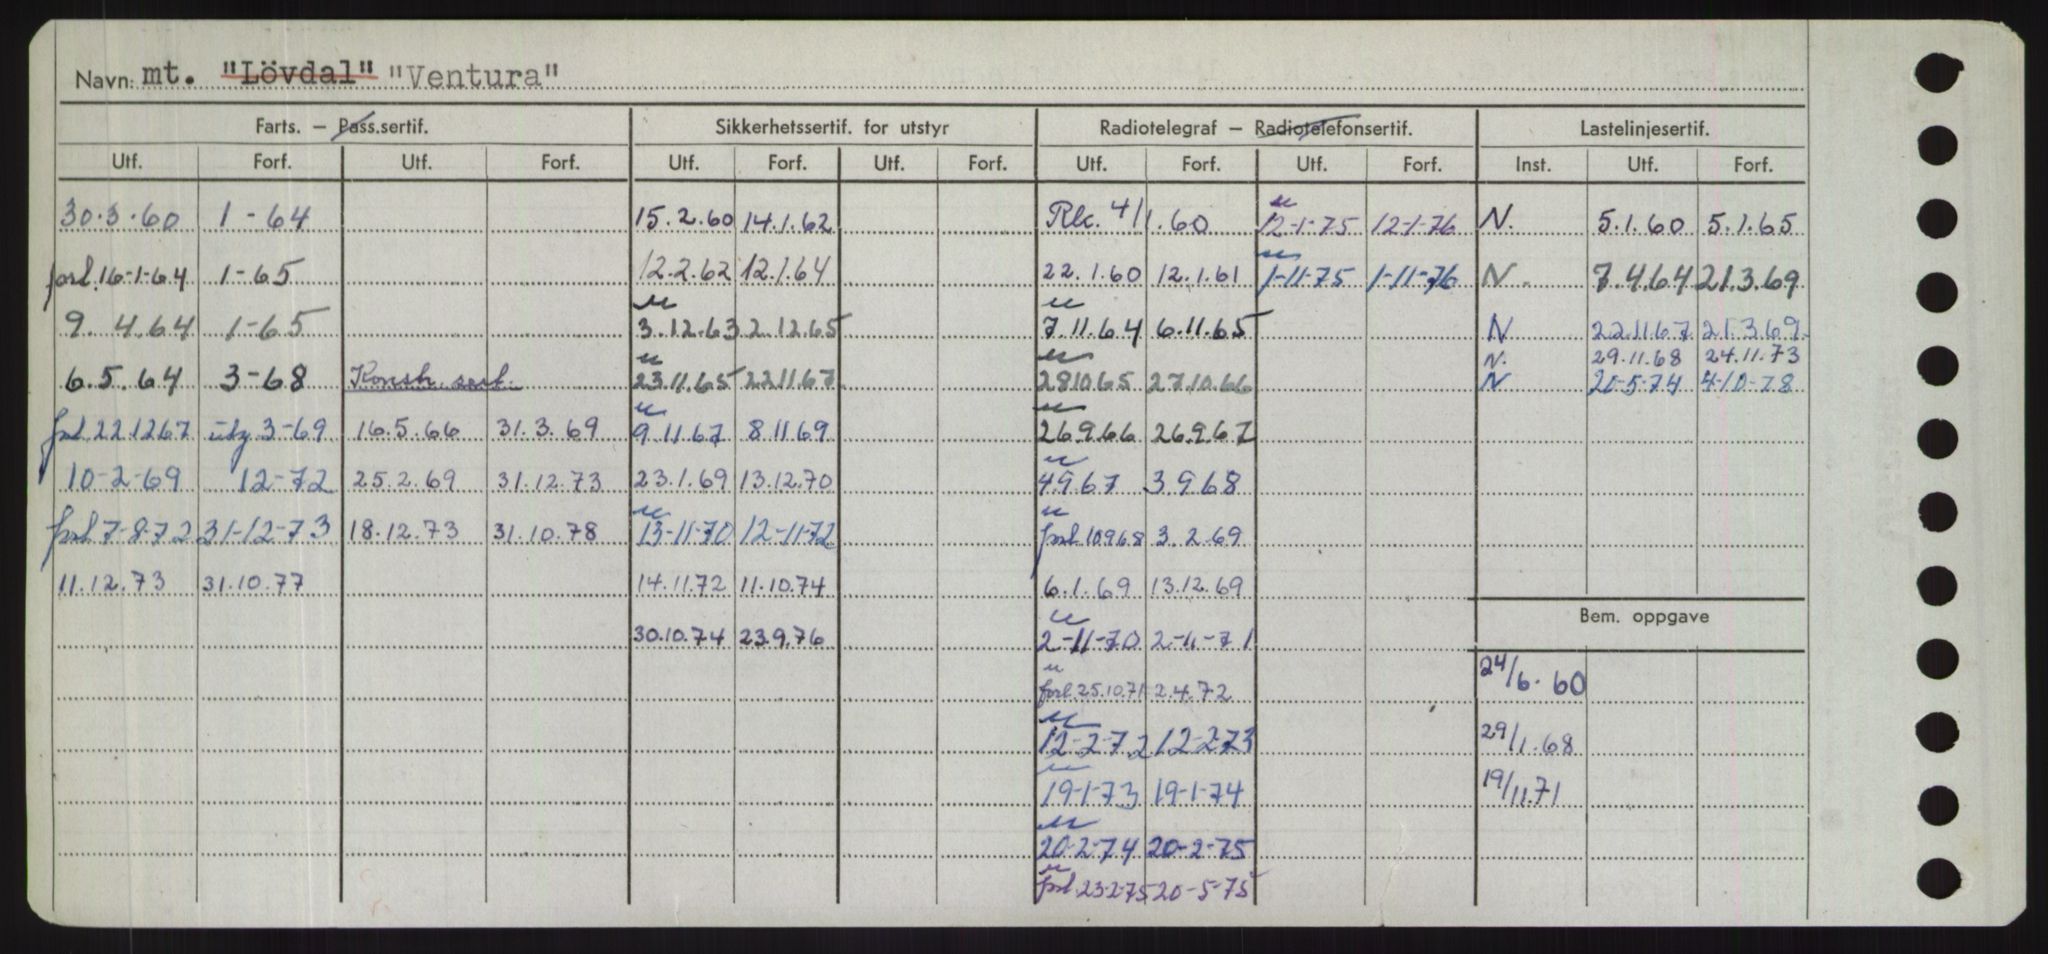 Navn: mt. "Lövdal" "Ventura"
Farts. — Pass.sertif. Sikkerhetssertif. for utstyr Radiotelegraf — Radiotelefonsertif. Lastelinjesertif.
Utf. Forf. Utf. Forf. Utf. Forf. Utf. Forf. Utf. Forf. Utf. Forf. Inst. Utf. Forf.
30.3.60 1-64 15.2.60 14.1.62 4/1.60 12-1-75 12-1-76 N. 5.1.60 5.1.65
forl. 16-1-64 1-65 12.2.62 12.1.64 22.1.60 12.1.61 1-11-75 1-11-76 N. 7.4.64 21.3.69
9.4.64 1-65 3.12.63 2.12.65 7.11.64 6.11.65 N 22.11.67 21.3.69.
N. 29.11.68 24.11.73
6.5.64 3-68 Konstr. sert. 23.11.65 22.11.67 28.10.65 27.10.66 N 20-5-74 4-10-78
forl 22.12.67 utg 3-69 16.5.66 31.3.69 9.11.67 8.11.69 26.9.66 26.9.67
10-2-69 12-72 25.2.69 31.12.73 23.1.69 13.12.70 4.9.67 3.9.68
forl 7-8-72 31-12-73 18.12.73 31.10.78 13-11-70 12-11-72 forl 10.9.68 3.2.69
11.12.73 31.10.77 14.11.72 11.10.74 6.1.69 13.12.69
Bem. oppgave
30.10.74 23.9.76 2-11-70 2-11-71
24/6.60
forl. 25.10.71 2.4.72
12-2-72 12-2-73 29/1.68
19-1-73 19-1-74 19/11.71
20-2-74 20-2-75
forl 23-2-75 20-5-75